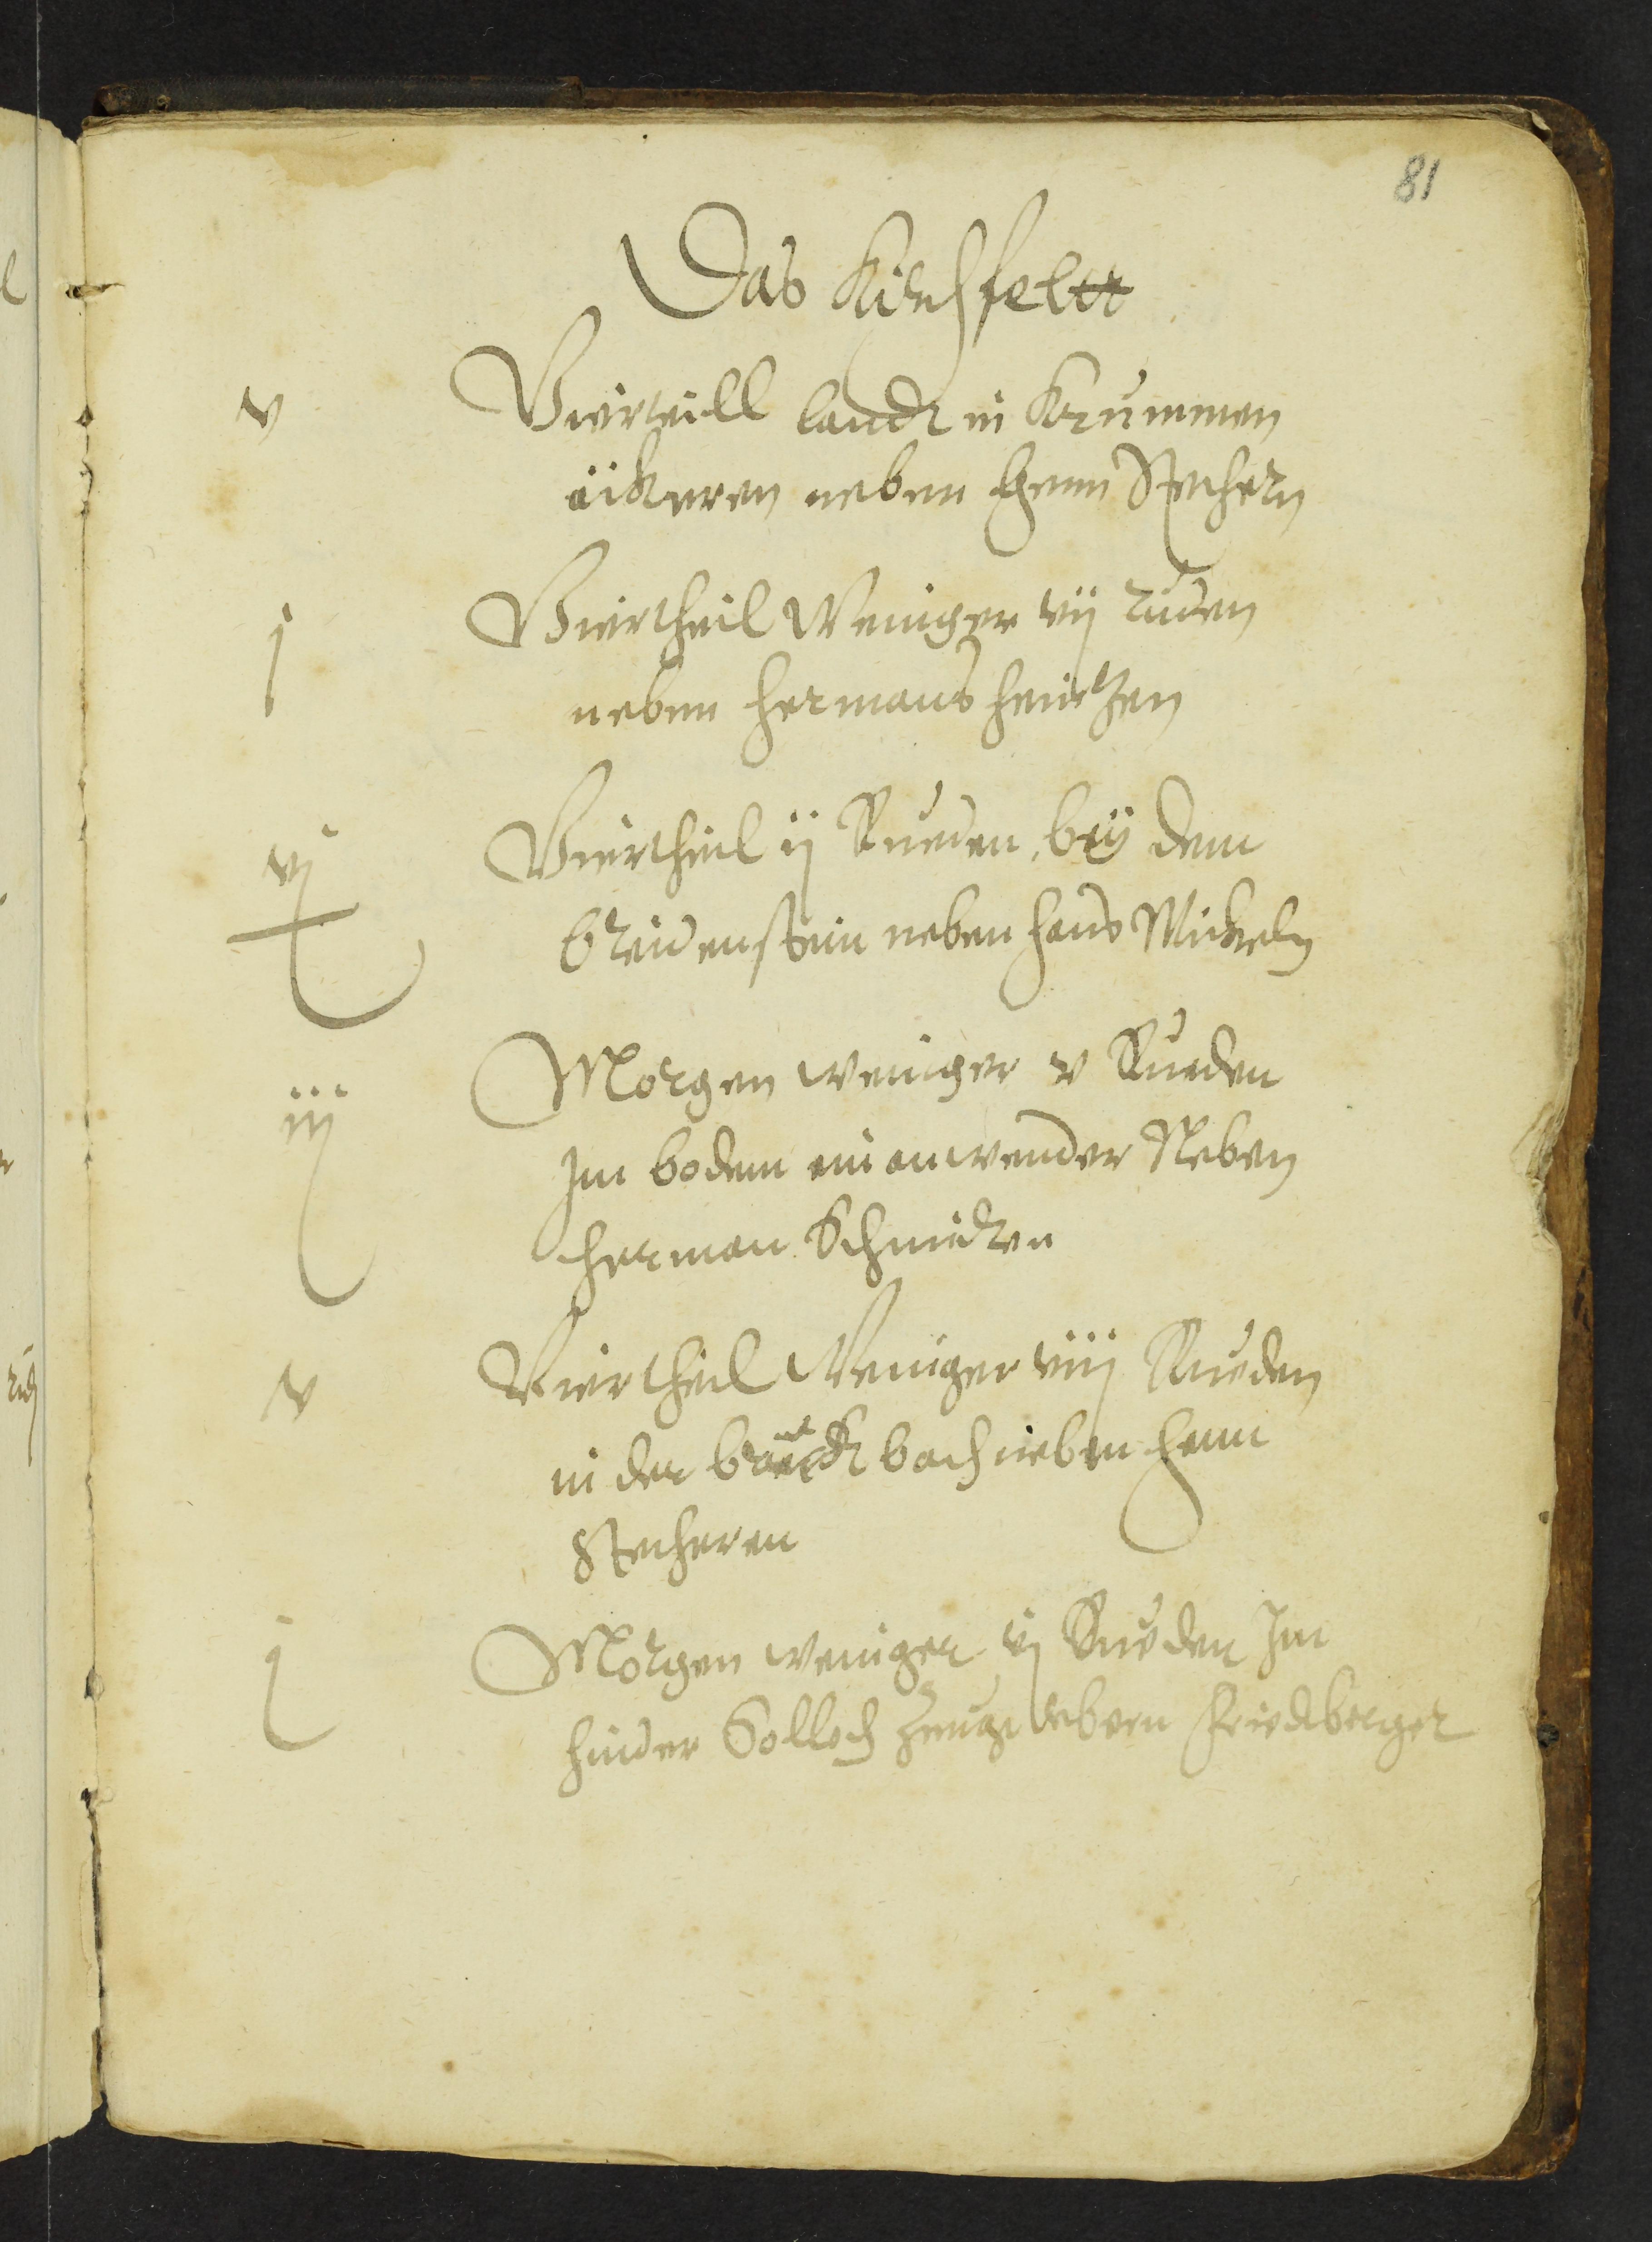 81
Das Kirchfeltt
v Vierteill landt in Krummen
äckeren neben Henn Stechern
j Viertheil Weniger vij ruden
neben Hermans Heintzen
vj Viertheil ij Rueden, bey dem
breidenstein neben Hans Mickeln
iij Morgen weniger v Rueden
Im bodem ein anwender Neben
Herman Schmidten
v Viertheil Weniger viij Rueden
in der bach neben Henn
Stecheren
j Morgen weniger ij Rueden Im
hinder neben Friedtberger